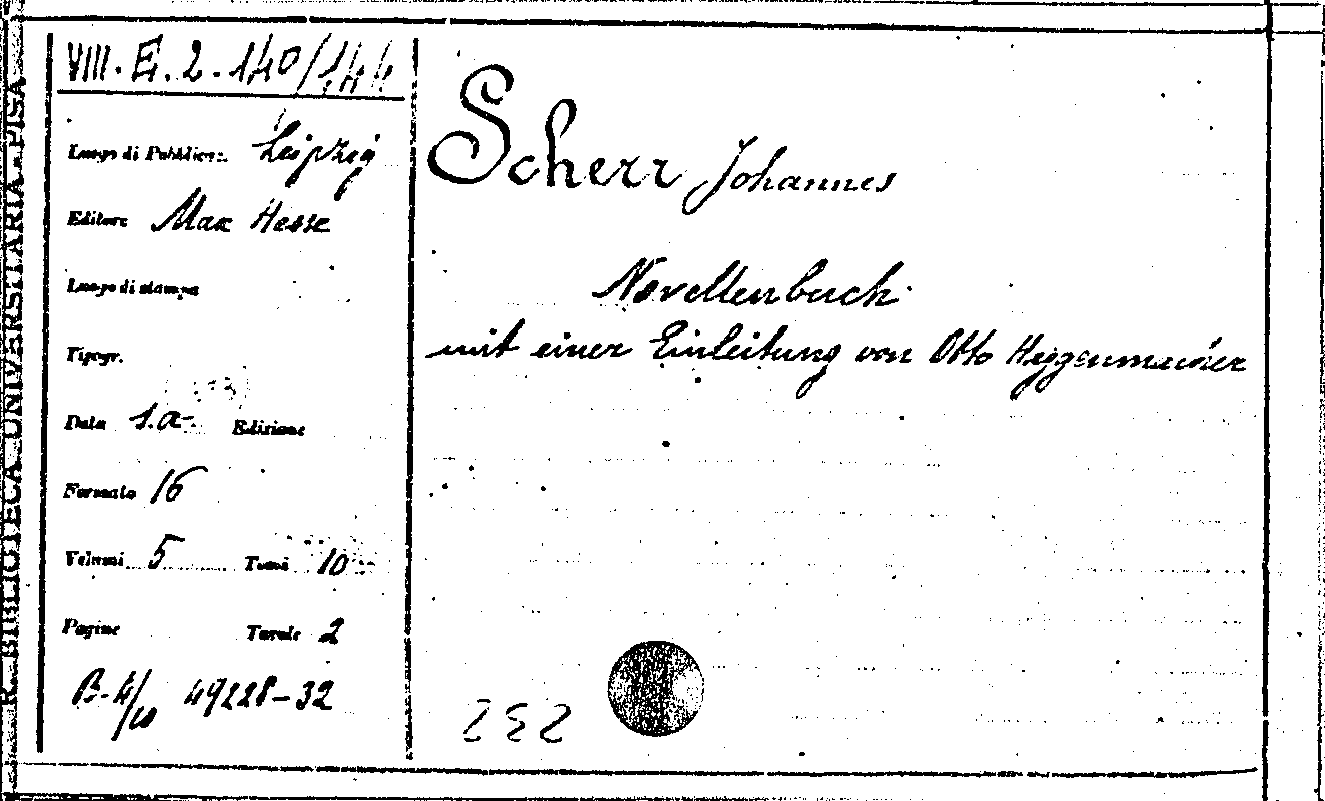 R. BIBLIOTECA UNIVERSITARIA - PISA
VIII. E. 2. 140/144
Luogo di Pubblicaz. Leipzig
Editore Max Hesse
Luogo di stampa
Tipogr.
Data s.a. Edizione
Formato 16
Volumi 5 Tomi 10
Pagine Tavole 2
B. 4/10 49228-32
Scherr Johannes
Novellenbuch
mit einer Einleitung von Otto Heggenmacher
232